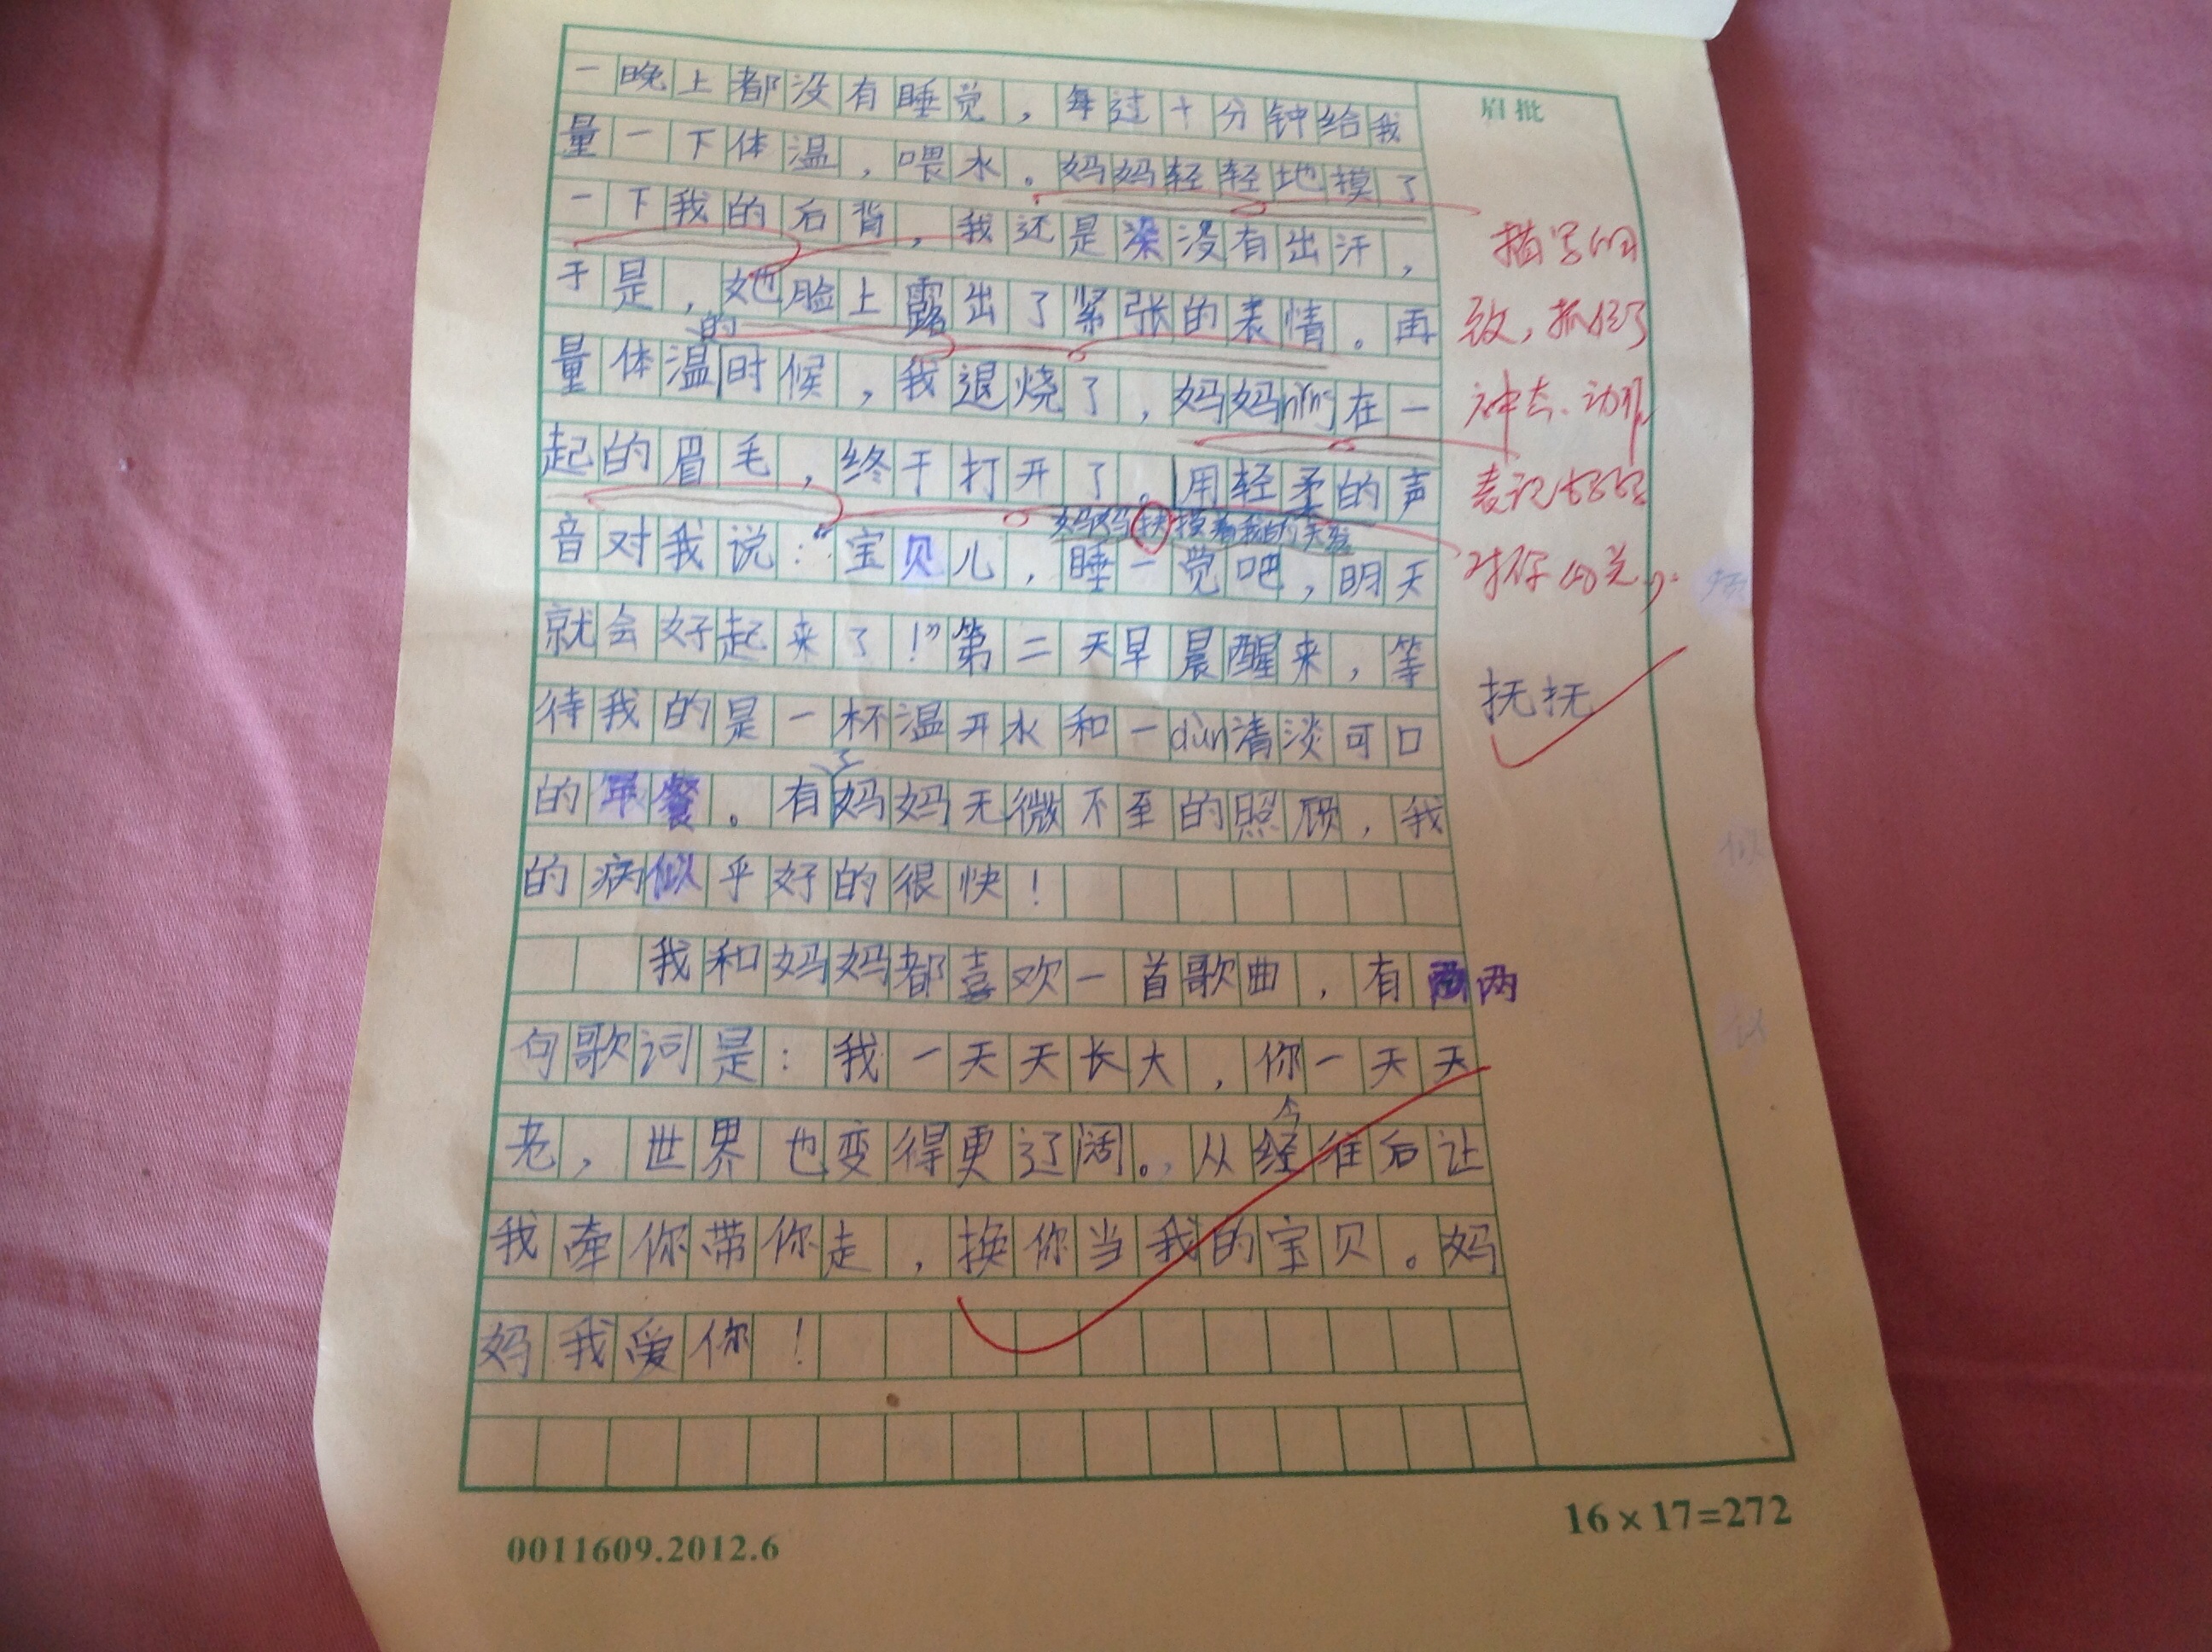 眉批
一晚上都没有睡觉，每过十分钟给我
量一下体温，喂水。妈妈轻轻地摸了
一下我的后背，我还是没有出汗，
于是，她脸上露出了紧张的表情。再
的
量体温时候，我退烧了，妈妈níng在一
起的眉毛，终于打开了。用轻柔的声
妈妈抚摸着我的头发
音对我说：“宝贝儿，睡一觉吧，明天
就会好起来了！”第二天早晨醒来，等
待我的是一杯温开水和一dùn清淡可口
了
的早餐。有妈妈无微不至的照顾，我
的病似乎好的很快！
我和妈妈都喜欢一首歌曲，有两
句歌词是：我一天天长大，你一天天
今
老，世界也变得更辽阔。从经往后让
我牵你带你走，换你当我的宝贝。妈
妈我爱你！
描写细
致，抓住了
神态、动作
表现妈妈
对你的关
抚抚
0011609.2012.6
16×17=272